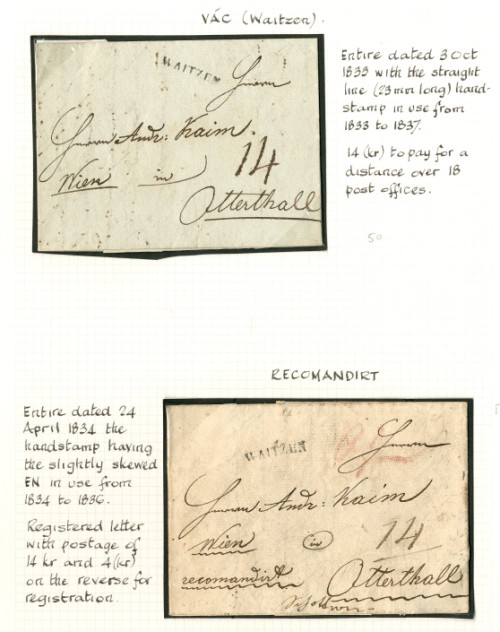 VÁC (Waitzen).
Entire dated 3 Oct
1833 with the straight
line (23mm long) hand-
stamp in use from
1833 to 1837.
14 (kr) to pay for a
distance over 18
post offices.
50
WAITZEN
Herrn
Herrn Andr: Kaim.
Wien in 14
Otterthall
RECOMANDIRT
Entire dated 24
April 1834 the
handstamp having
the slightly skewed
EN in use from
1834 to 1836.
Registered letter
with postage of
14 kr and 4(kr)
on the reverse for
registration.
WAITZEN
Herrn
Herrn Andr: Kaim
Wien in 14
recomandirt Otterthall